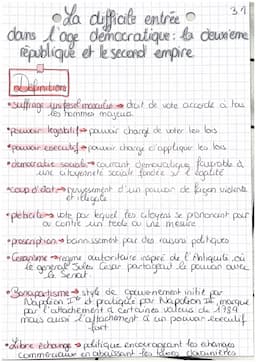 3.1
La difficile entrée
dans l'age démocratique: la deuxième
république et le second empire
Définitions
suffrage universel masculin → droit de vote accordé à tous
les hommes majeurs
pouvoir législatif → pouvoir chargé de voter les lois
pouvoir executif → pouvoir chargé d'appliquer les lois
démocratie sociale → courant démocratique favorable à
une citoyenneté sociale fondée sur l'égalité
coup d'état → renversement d'un pouvoir de façon violente
et illégale
plébicite → vote par lequel les citoyens se prononcent pour
ou contre un texte ou une mesure
proscription → bannissement pour des raisons politiques
Césarisme → régime autoritaire inspiré de l'Antiquité où
le général Jules César partageait le pouvoir avec
le Sénat
Bonapartisme → style de gouvernement initié par
Napoléon Ier et pratiqué par Napoléon III, marqué
par l'attachement à certaines valeurs de 1789
mais aussi l'attachement à un pouvoir exécutif
fort
Libre échange → politique encourageant les échanges
commerciaux en abaissant les taxes douanières